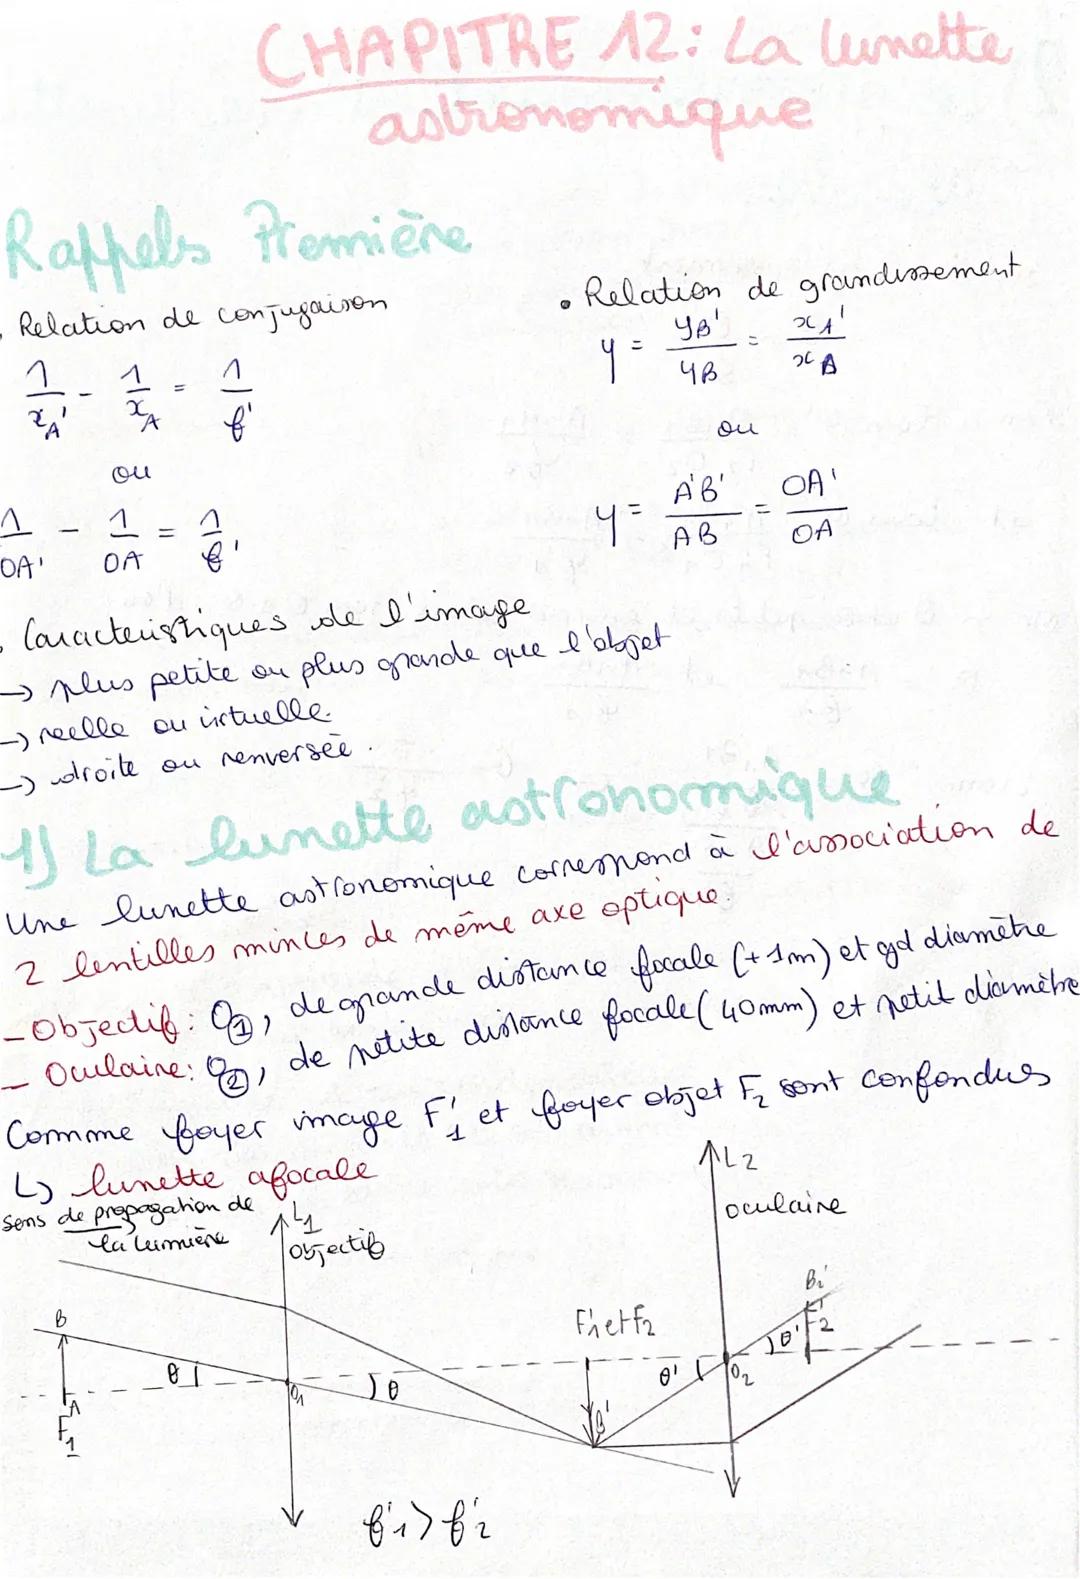 CHAPITRE 12: La lunette
astronomique
Rappels Première
• Relation de conjugaison
1/xA' - 1/xA = 1/f'
ou
1/OA' - 1/OA = 1/f'
• Relation de grandissement
γ = yB'/yB = xA'/xA
ou
γ = A'B'/AB = OA'/OA
• Caracteristiques de l'image
→ plus petite ou plus grande que l'objet
→ reelle ou virtuelle.
→ droite ou renversée.
1) La lunette astronomique
Une lunette astronomique correspond à l'association de
2 lentilles minces de même axe optique.
- Objectif: O1, de grande distance focale (+1m) et gd diamètre
- Oculaire: O2, de petite distance focale (40mm) et petit diamètre
Comme foyer image F'1 et foyer objet F2 sont confondus
↳ lunette afocale
sens de propagation de
la lumière
L1
Objectif
L2
oculaire
B
A
F1
θ
O1
θ
F'1 et F2
B'
θ'
O2
θ'
B2'
F'2
f'1 > f'2